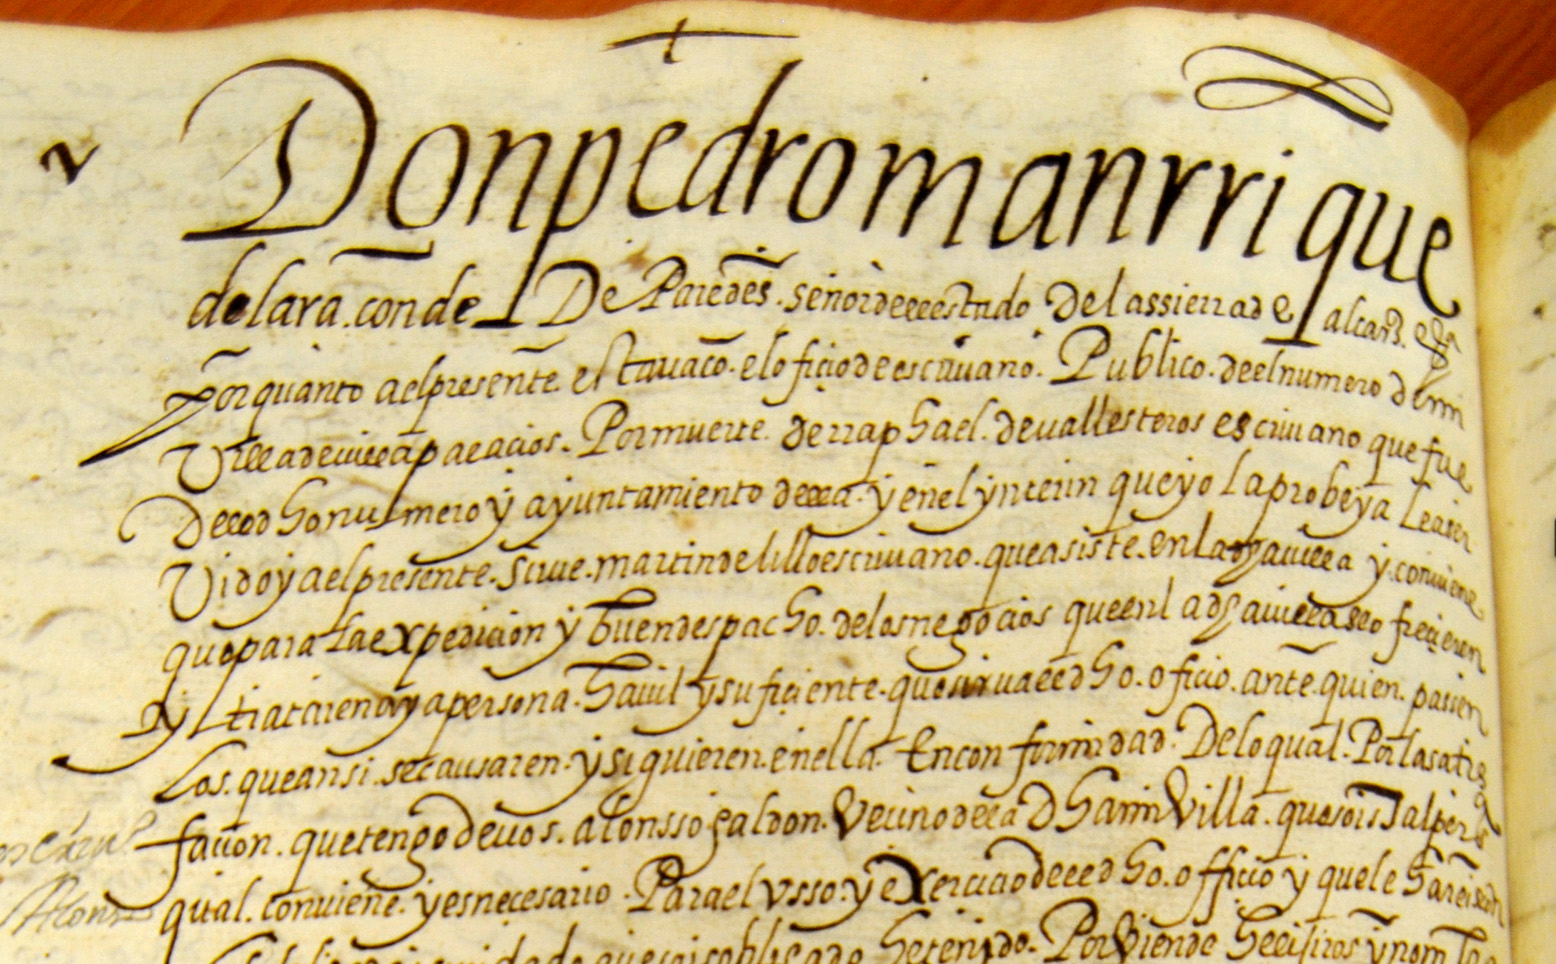 Don pedro manrrique
de lara. conde De Paredes. señor de el estado De la ssierra de alcarz. etta
Por quanto a el presente estauaco. el oficio de escriuano. Publico. de el numero de mi
Villa de villapalacios. Por muerte. de rraphael. de uallesteros escriuano que fue
De el dho numero y ayuntamiento de ella. y en el ynterin que yo la probeya le a ser
Vido y a el presente. sirue. martin de lillo escriuano. que asiste. en la dha uilla y. conuiene
que para la expedicion y buen despacho. de los negocios que en la dha uilla se ofrecieren
y trataren aya persona. hauil y suficiente. que sirua el dho. oficio. ante. quien. pasen
Los. que ansi. se causaren. y siguieren. en ella. En conformidad. De lo qual. Por la satis
facion. que tengo de uos. alonsso galdon. Vecino de la Dha mi Villa. que sois tal perso
qual. conuiene. y es necesario. Para el vsso. y exercicio de el dho. officio y que le hareis
que sois obligado he tenido. Por Viende